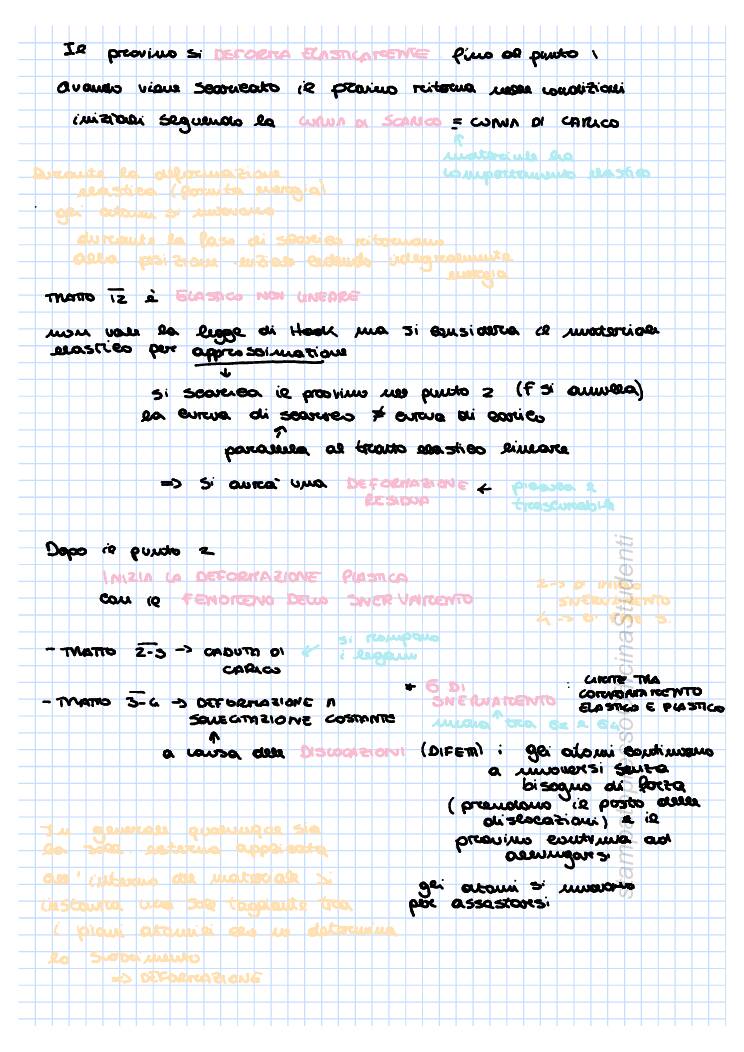 Il provino si DEFORMA ELASTICAMENTE fino al punto 1
Quando viene scaricato il provino ritorna nelle condizioni
iniziali seguendo la CURVA DI SCARICO = CURVA DI CARICO
↑
materiale ha
comportamento elastico
Durante la deformazione
elastica (fornita energia)
gli atomi si muovono
durante la fase di scarico ritornano
alla posizione iniziale cedendo integralmente
energia
TRATTO 12 è ELASTICO NON LINEARE
non vale la legge di Hook ma si considera il materiale
elastico per approssimazione
↓
si scarica il provino nel punto 2 (F si annulla)
la curva di scarico ≠ curva di carico
↑
parallela al tratto elastico lineare
=> si avrà una DEFORMAZIONE RESIDUA ← piccola e
trascurabile
Dopo il punto 2
INIZIA LA DEFORMAZIONE PLASTICA
con il FENOMENO DELLO SNERVAMENTO
2 -> σ inizio
SNERVAMENTO
4 -> σ fine S.
- TRATTO 2-3 -> CADUTA DI
CARICO
← si rompono
i legami
- TRATTO 3-4 -> DEFORMAZIONE A
SOLLECITAZIONE COSTANTE
↑
* σ DI
SNERVAMENTO : LIMITE TRA
COMPORTAMENTO
ELASTICO E PLASTICO
↑
media tra σ2 e σ4
a causa delle DISLOCAZIONI (DIFETTI) : gli atomi continuano
a muoversi senza
bisogno di forza
(prendono il posto delle
dislocazioni) e il
provino continua ad
allungarsi
gli atomi si muovono
per assestarsi
In generale qualunque sia
la esterna applicata
all'interno del materiale si
instaura una tagliante tra
i piani atomici che ne determina
lo scorrimento
=> DEFORMAZIONE